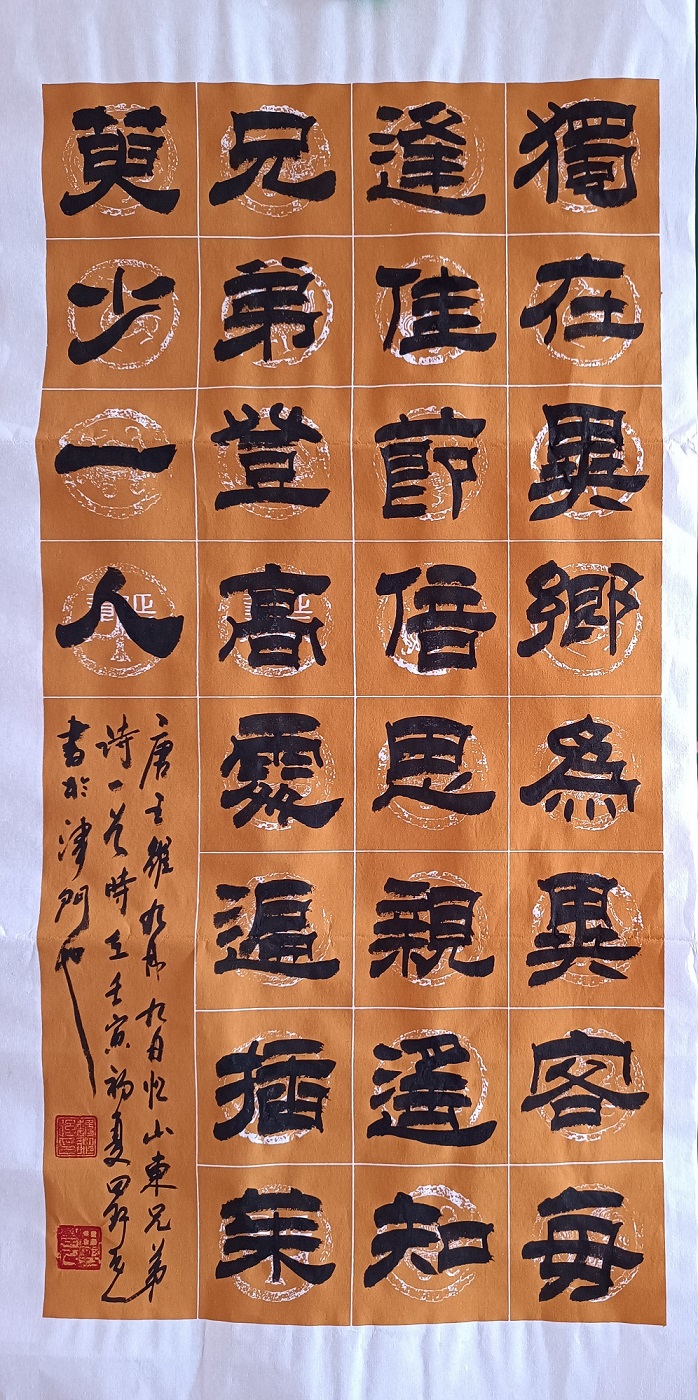 獨在異鄉爲異客每
逢佳節倍思親遙知
兄弟登高處遍插茱
萸少一人
唐王維九月九日憶山東兄弟
詩一首時在壬寅初夏
書於津門